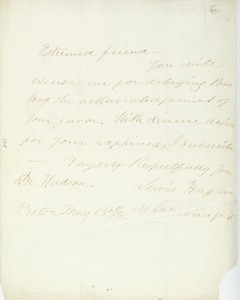 Esteemed friend —
You will
excuse me for delaying thus
long the acknowledgement of
your favor. With sincere desire
for your happiness, I subscribe
— myself Respectfully
Dr Hudson. Lewis
Boston May 13th